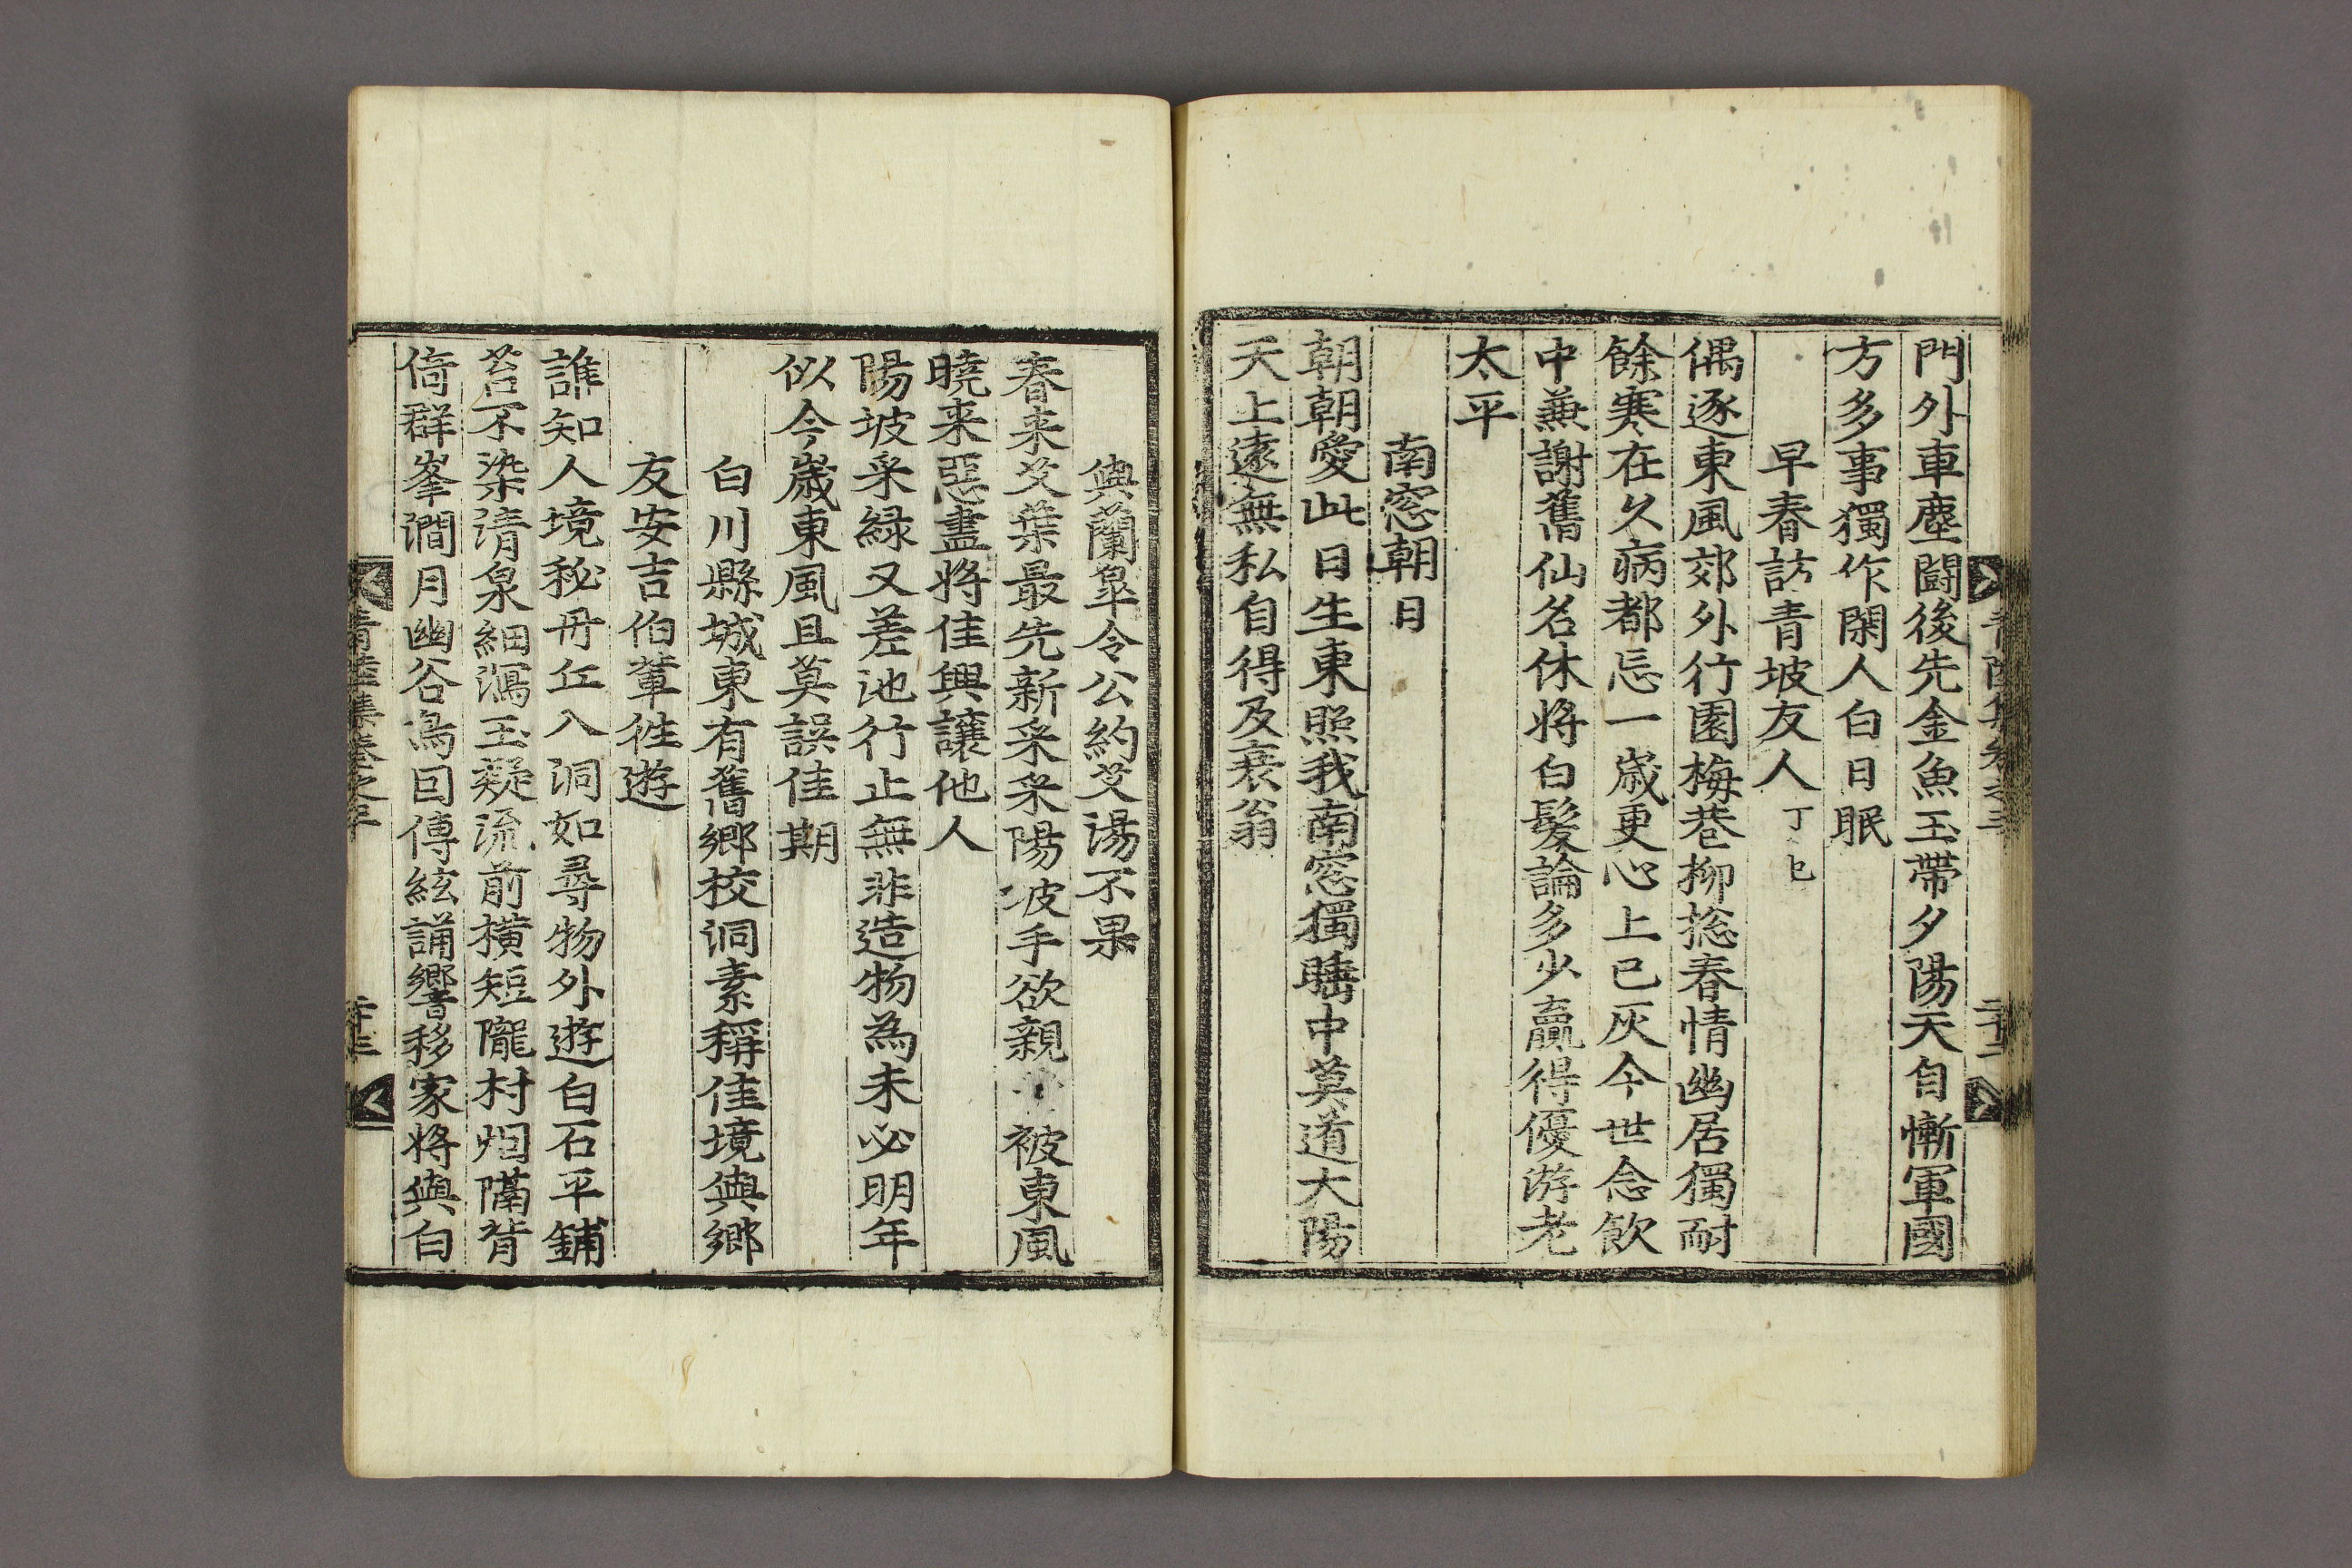 門外車塵鬪後先金魚玉帶夕陽天自慚軍國
方多事獨作閑人白日眠
早春訪青坡友人丁巳
偶逐東風郊外行園梅巷柳捴春情幽居獨耐
餘寒在久病都忘一歲更心上已灰今世念飮
中兼謝舊仙名休將白髮論多少贏得優游老
太平
南窓朝日
朝朝愛此日生東照我南窓獨睡中莫道大陽
天上遠無私自得及衰翁
與蘭皐令公約艾湯不果
春来艾葉最先新采采陽坡手欲親被東風
曉来惡盡將佳興讓他人
陽坡采綠又差池行止無非造物為未必明年
似今歲東風且莫誤佳期
白川縣城東有舊鄕校洞素稱佳境與鄕
友安吉伯輩徃遊
誰知人境秘丹丘入洞如尋物外遊白石平鋪
苔不染清泉細瀉玉凝流前橫短隴村烟隔背
倚群峯澗月幽谷鳥囙傳絃誦響移家將與白
青陸集卷之